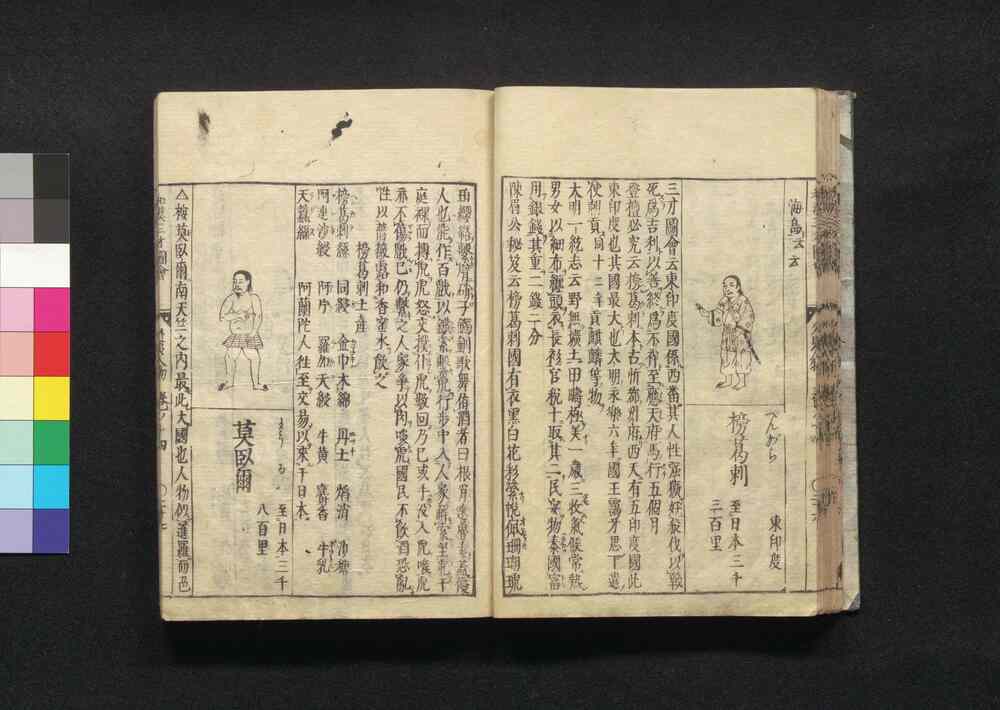 海島云云
べんがら　東印度
榜葛剌　至日本三千
三百里
三才圖會云東印度國係西番其人性強獷好殺伐以戰
死爲吉利以善終爲不祥至應天府馬行五個月
登壇必究云榜葛剌本古忻都州府西天有五印度國此
東印度也其國最大也大明永樂六年國王靄牙思丁遣
使朝貢同十二年貢麒麟等物
大明一統志云野無壙土田疇極美一歲三收氣候常熱
男女以細布纏頭衣長衫官稅十取其二民富物泰國富
用銀錢其重二錢二分
陳眉公秘笈云榜葛剌國有衣黒白花衫縈帨佩珊瑚琥
珀纓絡繫臂硝子鐲釧歌舞侑酒者曰根
人也能作百戲以鐵索繫虎行步市中入人家解索坐虎于
庭裸而搏虎虎怒交撲仆虎數回乃已或手投入虎喉虎
亦不傷戲已仍繫之人家爭以肉啖虎國民不飮酒恐亂
性以薔薇露和香蜜水飮之
榜葛剌土産
榜葛剌絹　同縠　金巾木綿　丹土　焰消　沙糖
阿片　牛黄　麝香　牛乳
天蠶絲　阿蘭陀人往至交易以來于日本
もうる　至日本三千
莫臥爾　八百里
△按莫臥爾南天竺之内最此大國也人物似暹羅而色